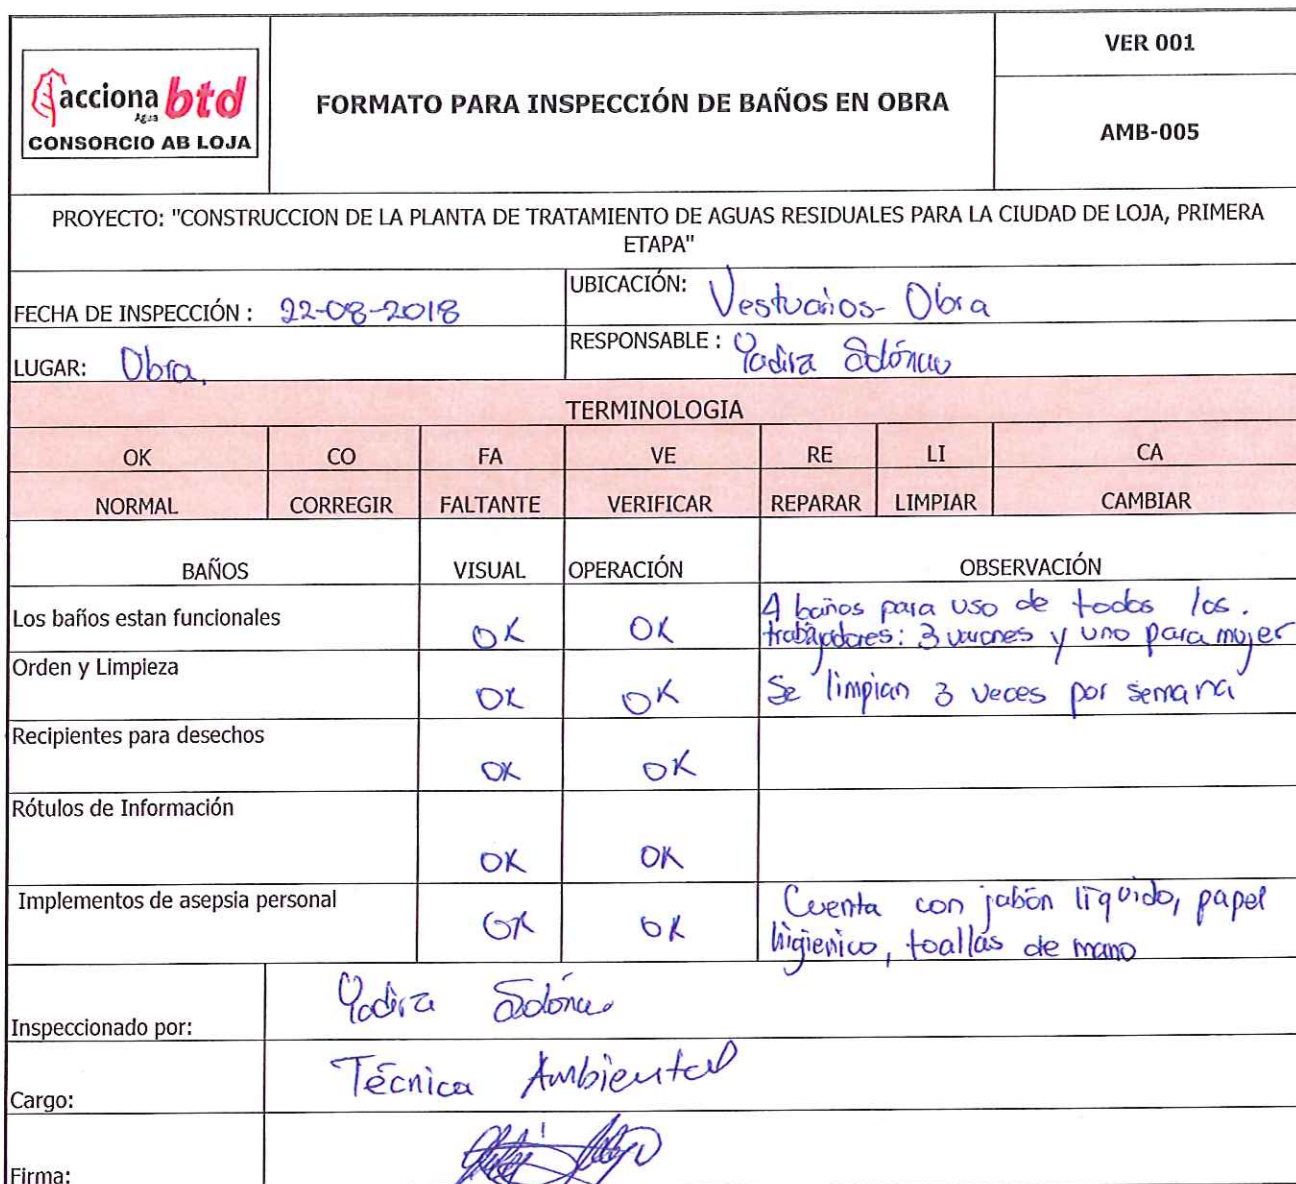 acciona btd
Agua
CONSORCIO AB LOJA
FORMATO PARA INSPECCIÓN DE BAÑOS EN OBRA
VER 001
AMB-005
PROYECTO: "CONSTRUCCION DE LA PLANTA DE TRATAMIENTO DE AGUAS RESIDUALES PARA LA CIUDAD DE LOJA, PRIMERA
ETAPA"
FECHA DE INSPECCIÓN : 22-08-2018
UBICACIÓN: Vestuarios- Obra
LUGAR: Obra.
RESPONSABLE : Yadira
TERMINOLOGIA
OK CO FA VE RE LI CA
NORMAL CORREGIR FALTANTE VERIFICAR REPARAR LIMPIAR CAMBIAR
BAÑOS VISUAL OPERACIÓN OBSERVACIÓN
Los baños estan funcionales OK OK 4 baños para uso de todos los.
trabajadores: 3 varones y uno para mujer
Orden y Limpieza OK OK Se limpian 3 veces por semana
Recipientes para desechos OK OK
Rótulos de Información OK OK
Implementos de asepsia personal OK OK Cuenta con jabón líquido, papel
higienico, toallas de mano
Inspeccionado por: Yadira
Cargo: Técnica Ambiental
Firma: